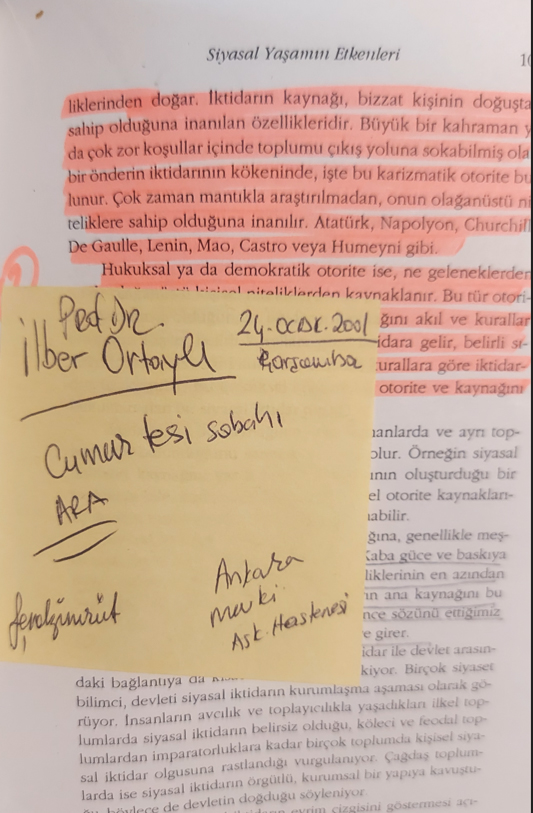 Siyasal Yaşamın Etkenleri
liklerinden doğar. İktidarın kaynağı, bizzat kişinin doğuşta
sahip olduğuna inanılan özellikleridir. Büyük bir kahraman y
da çok zor koşullar içinde toplumu çıkış yoluna sokabilmiş ola
bir önderin iktidarının kökeninde, işte bu karizmatik otorite bu
lunur. Çok zaman mantıkla araştırılmadan, onun olağanüstü ni
teliklere sahip olduğuna inanılır. Atatürk, Napolyon, Churchill
De Gaulle, Lenin, Mao, Castro veya Humeyni gibi.
Hukuksal ya da demokratik otorite ise, ne geleneklerden
kişisel niteliklerden kaynaklanır. Bu tür otori-
ğını akıl ve kurallar
idara gelir, belirli sı-
urallara göre iktidar-
otorite ve kaynağını
Dr.
İlber Ortaylı
24. OCAK. 2001
Çarşamba
Cumartesi sabahı
ARA
Ankara
mevki
Ask. Hastenesi
anlarda ve ayrı top-
olur. Örneğin siyasal
ının oluşturduğu bir
el otorite kaynakları-
abilir.
ğına, genellikle meş-
Kaba güce ve baskıya
liklerinin en azından
ın ana kaynağını bu
nce sözünü ettiğimiz
e girer.
idar ile devlet arasın-
daki bağlantıya da kiyor. Birçok siyaset
bilimci, devleti siyasal iktidarın kurumlaşma aşaması olarak gö-
rüyor. İnsanların avcılık ve toplayıcılıkla yaşadıkları ilkel top-
lumlarda siyasal iktidarın belirsiz olduğu, köleci ve feodal top-
lumlardan imparatorluklara kadar birçok toplumda kişisel siya-
sal iktidar olgusuna rastlandığı vurgulanıyor. Çağdaş toplum-
larda ise siyasal iktidarın örgütlü, kurumsal bir yapıya kavuştu-
ğu, böylece de devletin doğduğu söyleniyor.
evrim çizgisini göstermesi açı-